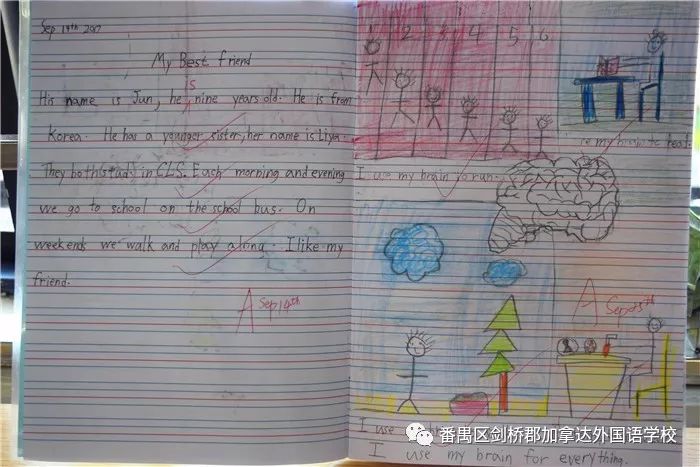 Sep 14th 2017
My Best friend
is
His name is Jun, he nine years old. He is from
Korea. He has a younger sister, her name is Liya.
They both study in CLS. Each morning and evening
we go to school on the school bus. On
weekends we walk and play along. I like my
friend.
A Sep 14th
1 2 3 4 5 6
my brain to read.
I use my brain to run.
A Sep
I use
I use my brain for everything.
番禺区剑桥郡加拿达外国语学校